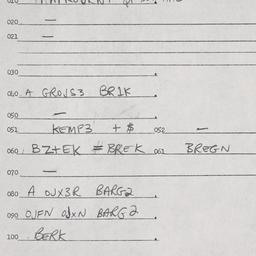 020 —
021 —
030
040 A GROJS3 BR1K
050 —
051 KEMP3 + $ 052 —
060 BZ+EK = BREK 061 BREGN
070 —
080 A OJX3R BARG2
090 OJFN OJXN BARG2
100 BERK